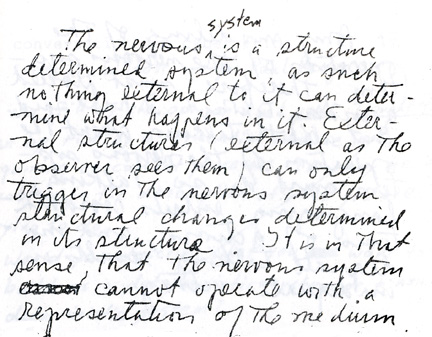 system
The nervous ‸ is a structure
determined system, as such
nothing external to it can deter-
mine what happens in it. Exter-
nal structures (external as the
observer sees them) can only
trigger in the nervous system
structural changes determined
in its structure  It is in that
sense, that the nervous system
cannot operate with a
representation of the medium.